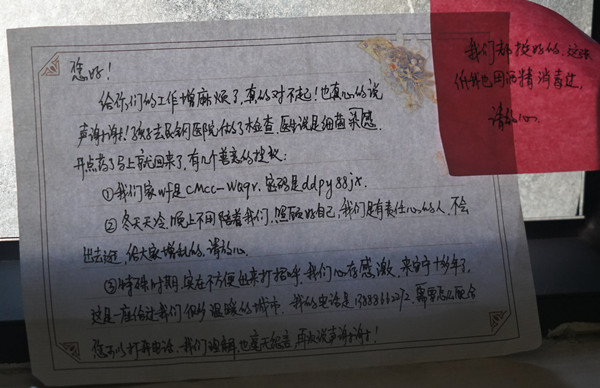 您好！
给你们的工作增麻烦了，真的对不起！也真心的说
声谢谢！孩子去长钢医院做了水检查，医生说是细菌感染，
开点药了马上就回来了，有几个善意的提议：
①我们家wifi是CMCC-Waqr，密码是ddpy88jx.
②冬天天冷，晚上不用陪着我们，照顾好自己，我们是有责任心的人，不会
出去逛，给大家增乱的，请放心。
③特殊时期，实在不方便出来打招呼，我们心存感激，来 十多年了，
这是一座给过我们很多温暖的城市，我的电话是 ，需要怎么配合
您可以打开电话，我们理解，也毫无怨言，再次说声谢谢！
我们都挺好的，这张
纸我也用酒精消毒过，
请放心。